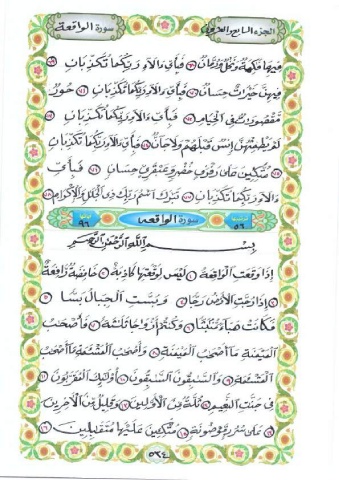 الجزء السابع والعشرون
سورة الواقعة
فِيهِمَا فَٰكِهَةٌ وَنَخْلٌ وَرُمَّانٌ ٦٨ فَبِأَيِّ ءَالَآءِ رَبِّكُمَا تُكَذِّبَانِ ٦٩
فِيهِنَّ خَيْرَٰتٌ حِسَانٌ ٧٠ فَبِأَيِّ ءَالَآءِ رَبِّكُمَا تُكَذِّبَانِ ٧١ حُورٌ
مَّقْصُورَٰتٌ فِي الْخِيَامِ ٧٢ فَبِأَيِّ ءَالَآءِ رَبِّكُمَا تُكَذِّبَانِ ٧٣
لَمْ يَطْمِثْهُنَّ إِنسٌ قَبْلَهُمْ وَلَا جَآنٌّ ٧٤ فَبِأَيِّ ءَالَآءِ رَبِّكُمَا تُكَذِّبَانِ
٧٥ مُتَّكِـِٔينَ عَلَىٰ رَفْرَفٍ خُضْرٍ وَعَبْقَرِيٍّ حِسَانٍ ٧٦ فَبِأَيِّ
ءَالَآءِ رَبِّكُمَا تُكَذِّبَانِ ٧٧ تَبَٰرَكَ اسْمُ رَبِّكَ ذِي الْجَلَٰلِ وَالْإِكْرَامِ ٧٨
ترتيبها ٥٦ سورة الواقعة آياتها ٩٦
بِسْمِ اللَّهِ الرَّحْمَٰنِ الرَّحِيمِ
إِذَا وَقَعَتِ الْوَاقِعَةُ ١ لَيْسَ لِوَقْعَتِهَا كَاذِبَةٌ ٢ خَافِضَةٌ رَّافِعَةٌ
٣ إِذَا رُجَّتِ الْأَرْضُ رَجًّا ٤ وَبُسَّتِ الْجِبَالُ بَسًّا ٥
فَكَانَتْ هَبَآءً مُّنۢبَثًّا ٦ وَكُنتُمْ أَزْوَٰجًا ثَلَٰثَةً ٧ فَأَصْحَٰبُ
الْمَيْمَنَةِ مَآ أَصْحَٰبُ الْمَيْمَنَةِ ٨ وَأَصْحَٰبُ الْمَشْـَٔمَةِ مَآ أَصْحَٰبُ
الْمَشْـَٔمَةِ ٩ وَالسَّٰبِقُونَ السَّٰبِقُونَ ١٠ أُو۟لَٰٓئِكَ الْمُقَرَّبُونَ ١١
فِي جَنَّٰتِ النَّعِيمِ ١٢ ثُلَّةٌ مِّنَ الْأَوَّلِينَ ١٣ وَقَلِيلٌ مِّنَ الْءَاخِرِينَ
١٤ عَلَىٰ سُرُرٍ مَّوْضُونَةٍ ١٥ مُّتَّكِـِٔينَ عَلَيْهَا مُتَقَٰبِلِينَ ١٦
٥٣٤